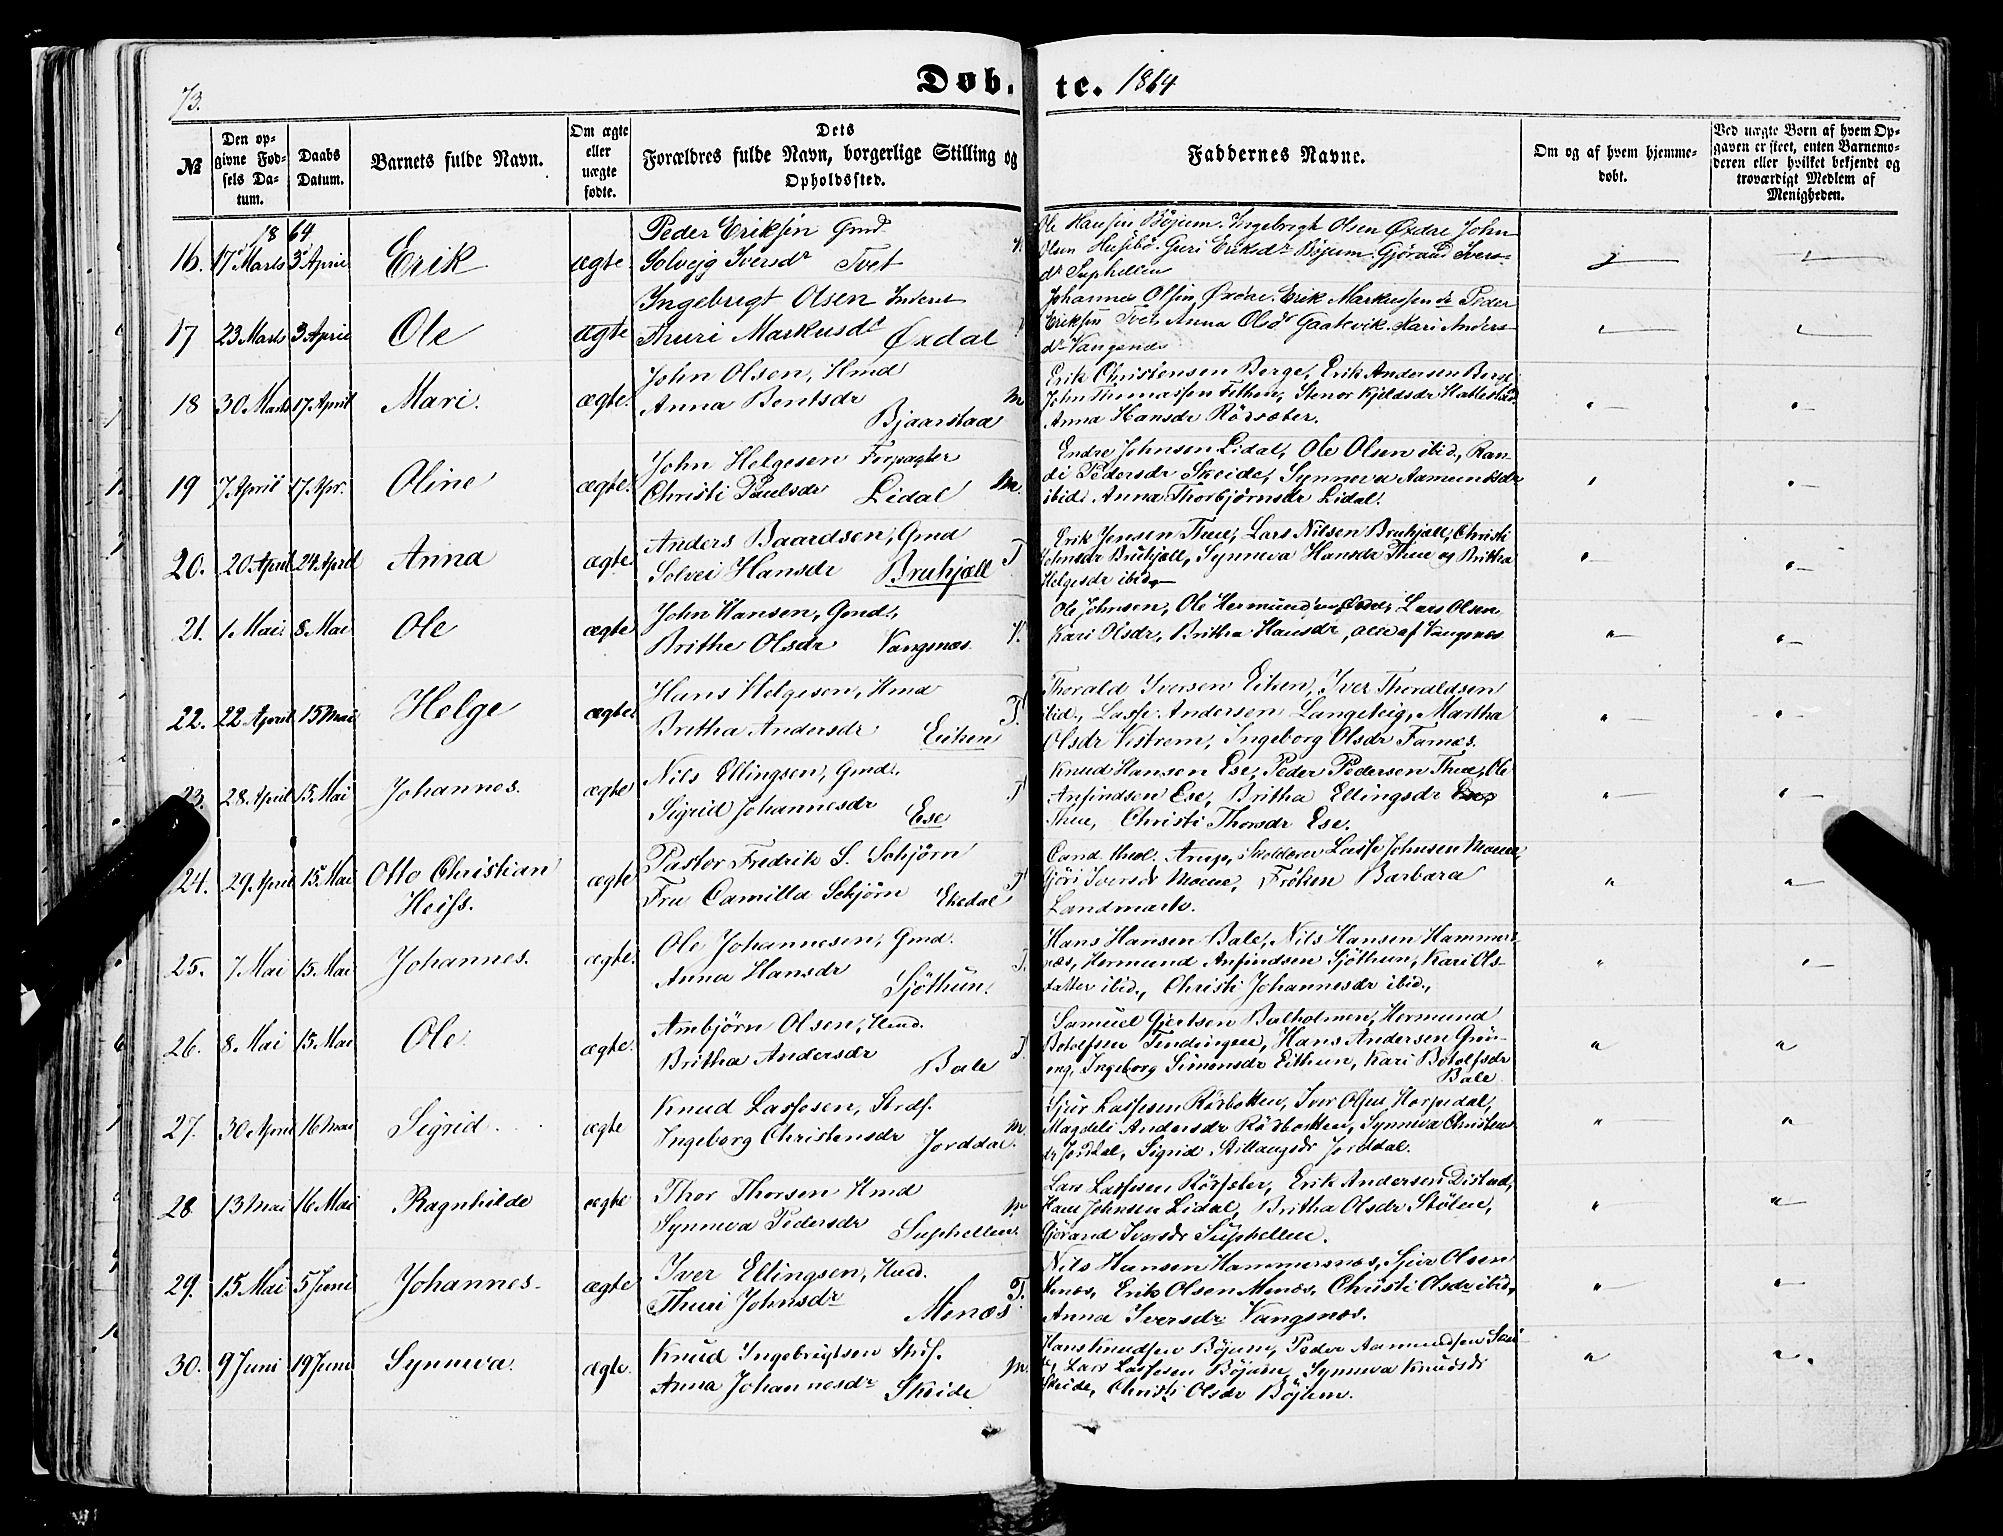 73.
Døb.
te. 1864
№
Den op-
givne Fød-
sels Da-
tum.
Daabs
Datum.
Barnets fulde Navn.
Om ægte
eller
uægte
fødte.
Dets
Forældres fulde Navn, borgerlige Stilling og
Opholdssted.
Faddernes Navne.
Om og af hvem hjemme-
døbt.
Ved uægte Børn af hvem Op-
gaven er skeet, enten Barnemo-
deren eller hvilket bekjendt og
troværdigt Medlem af
Menigheden.
1864
16. 17 Marts 3 April Erik ægte
Peder Eriksen Gmd
Solvegg Iversdr Tvet
Ole Hansen Böjum, Ingebrigt Olsen Øxdal, John
Olsen Husebö. Guri Eriksdr Böjum. Gjörand Ivers-
dr Suphellen
17 23 Marts 3 April Ole ægte
Ingebrigt Olsen Inderst
Thuri Markusdr Øxdal
Johannes Olsen Øxdal. Erik Markussen ib Peder
Eriksen Tvet, Anna Olsdr Gaatevik. Kari Anders-
dr Vangsnæs
18 30 Marts 17 April Mari. ægte.
John Olsen, Hmd
Anna Berntsdr
Bjaarstad M
Erik Christensen Berge, Erik Andersen Berge
John Thomassen Fithen, Stenor Kjeldsdr Hatlestad
Anna Hansdr Rörsæter.
19 7 April 17. Apr. Oline ægte.
John Helgesen Forpagter
Christi Paulsdr Lidal M.
Endre Johnsen Lidal, Ole Olsen ibid, Ran-
di Pedersdr Skeide, Synneva Aamundsdr
ibid. Anna Thorbjörnsdr Lidal.
20. 20 April 24 April Anna ægte
Anders Baardsen, Gmd
Solvei Hansdr Bruhjell T
Erik Jensen Thue, Lars Nilsen Bruhjell, Christi
Johnsdr Bruhjell, Synneva Hansdr Thue og Britha
Helgesdr ibid.
21. 1. Mai 8. Mai Ole ægte
John Hansen, Gmd.,
Brithe Olsdr Vangsnæs. V.
Ole Johnsen, Ole Hermundsen, Lars Olsen
Kari Olsdr, Britha Hansdr, alle af Vangsnæs
22. 22 April 15 Mai Helge ægte
Hans Helgesen, Hmd
Britha Andersdr Eithen T.
Thorald Iversen Eithen, Iver Thoraldsen
ibid., Lasse Andersen Langeteig, Martha
Olsdr Vistrem, Ingeborg Olsdr Farnæs.
23. 28 April 15. Mai Johannes. ægte
Nils Ellingsen, Gmd.
Sigrid Johannesdr Ese T
Knud Hansen Ese, Peder Pedersen Thue, Ole
Anfindsen Ese, Britha Ellingsdr
Thue, Christi Thorsdr Ese.
24. 29. April 15 Mai Otto Christian
Heiss. ægte
Pastor Fredrik S. Schjörn
Fru Camilla Schjörn T
Cand. theol. Arup, Skolelærer Lasse Johnsen
Gjöri Iversdr Frøken Barbara
Landmark.
25. 7 Mai 15. Mai Johannes. ægte.
Ole Johannesen, Gmd.
Anna Hansdr
Sjöthun. T.
Hans Hansen Bale, Nils Hansen Hammers-
næs, Hermund Anfindsen Sjöthun, Kari Ols-
datter ibid., Christi Johannesdr ibid.,
26. 8. Mai 15. Mai Ole ægte.
Ambjörn Olsen, Hmd.
Britha Andersdr
Bale T.
Samuel Gjertsen Balholmen, Hermund
Botolfsen Tendingen, Hans Andersen Grön-
eng, Ingeborg Simonsdr Eithun, Kari Botolfsdr
Bale
27. 30 April 16 Mai Sigrid ægte
Knud Lassesen, Strdf.
Ingeborg Christensdr Jorddal. M.
Sjur Lassesen Rörbotten, Iver Olsen Horpedal,
Magdeli Andersdr Rörbotten, Synneva Christens
dr Jorddal, Sigrid Jorddal.
28. 13 Mai 16 Mai Ragnhilde ægte
Thor Thorsen Hmd
Synneva Pedersdr Suphellen. M
Lars Lassesen Rörsæter, Erik Andersen Distad,
Hans Johnsen Lidal, Britha Olsdr Stölen,
Gjörand Iversdr Suphellen.
29. 15 Mai 5 Juni Johannes. ægte
Iver Ellingsen, Hmd.
Thuri Johnsdr
Menæs T.
Nils Hansen Hammersnæs, Sjur Olsen
Menæs, Erik Olsen Menæs, Christi Olsdr ibid,
Anna Iversdr Vangsnæs.
30. 9 Juni 19 Juni Synneva. ægte.
Knud Ingebrigtsen Strdf.
Anna Johannesdr Skeide M.
Hans Knudsen Böjum, Peder Aamundsen
Lars Lassesen Böjum, Synneva Knudsdr
Skeide, Christi Olsdr Böjum.